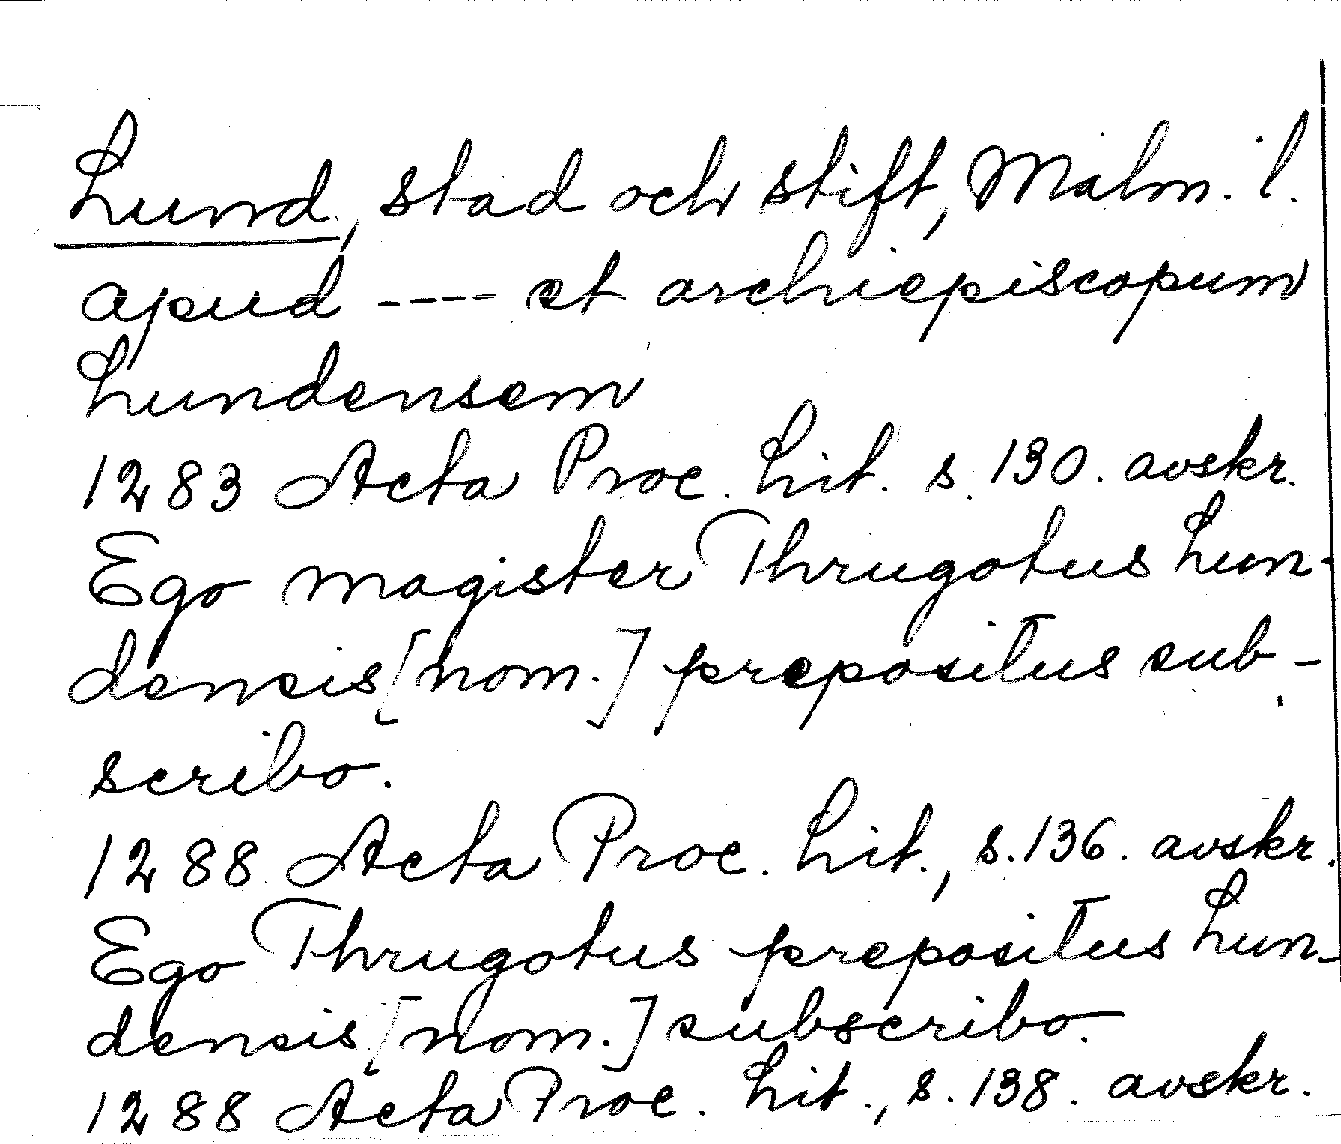 Lund, stad och stift, Malm. l.
apud ---- et archiepiscopum
Lundensem
1283 Acta Proc. Lit. s. 130. avskr.
Ego magister Thrugotus Lun-
densis [nom.] prepositus sub-
scribo.
1288 Acta Proc. Lit., s. 136. avskr.
Ego Thrugotus prepositus Lun-
densis [nom.] subscribo.
1288 Acta Proc. Lit., s. 138. avskr.